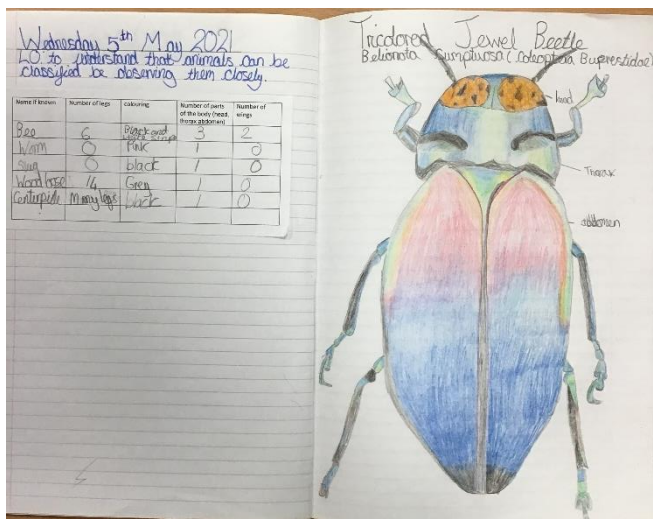 Wednesday 5th May 2021
L.O. to understand that animals can be
classified be observing them closely.
Name if known Number of legs colouring Number of parts of the body (head, thorax abdomen) Number of wings
Bee 6 Black and 3 2
Worm 0 Pink 1 0
Slug 0 black 1 0
Woodlouse 14 Grey 1 0
Centerpide Many legs black 1 0
Tricolored Jewel Beetle
Belionota Sumptuosa (Coleoptera Buprestidae)
head
Thorax
abdomen